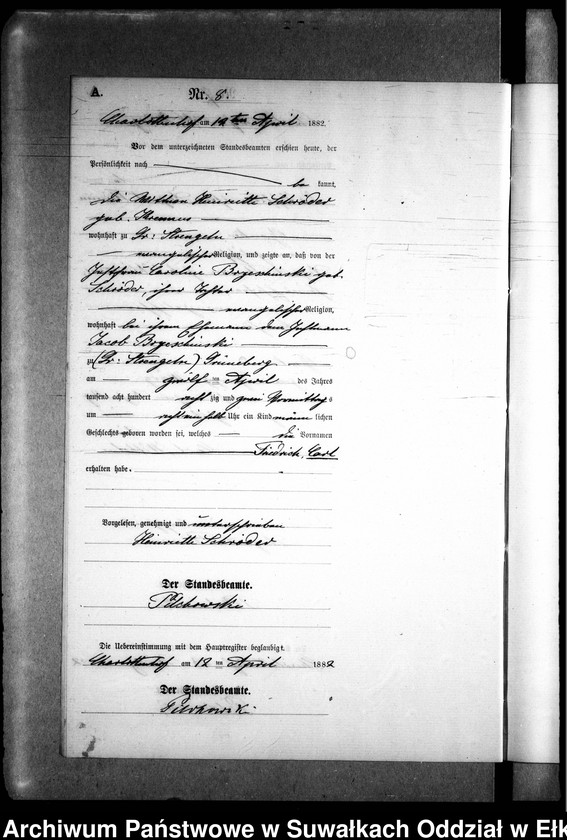 A.
Nr. 8.
Charlottenhof am 12 ten April 1882.
Vor dem unterzeichneten Standesbeamten erschien heute, der
Persönlichkeit nach
be kannt,
die Wittwe Heinriette Schröder
geb.
wohnhaft zu Gr: Strengeln
evangelischer Religion, und zeigte an, daß von der
Justfrau Caroline geb.
Schröder, ihrer Tochter
evangelischer Religion,
wohnhaft bei ihrem Ehemann dem Justmann
Jacob
zu (Gr: Strengeln) Grüneberg
am zwölf ten April des Jahres
tausend acht hundert acht zig und zwei Vormittags
um acht ein halb Uhr ein Kind männ lichen
Geschlechts geboren worden sei, welches die Vornamen
Friedrich, Carl
erhalten habe.
Vorgelesen, genehmigt und unterschrieben
Heinriette Schröder
Der Standesbeamte.
Pilchowski
Die Uebereinstimmung mit dem Hauptregister beglaubigt.
Charlottenhof am 12 ten April 1882
Der Standesbeamte.
Pilchowski
Archiwum Państwowe w Suwałkach Oddział w Ełk